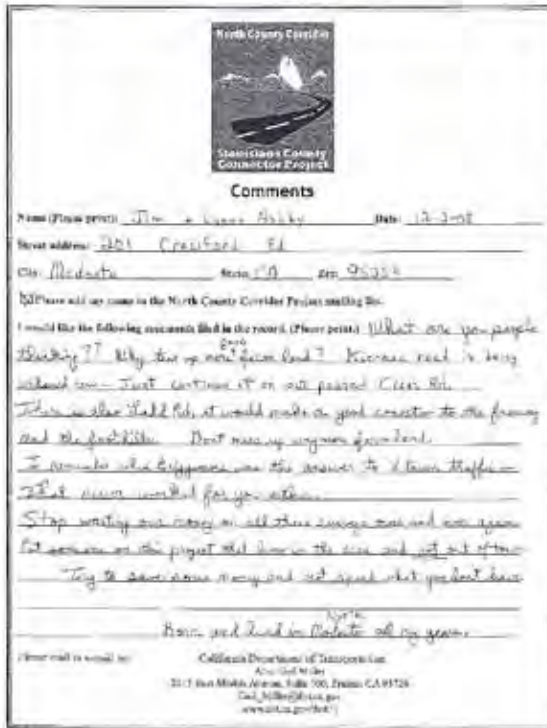 North County Corridor
Stanislaus County
Connector Project
Comments
Name (Please print): Jim + Ashby Date: 12-2-08
Street address: 201 Crawford Rd
City: Modesto State: CA Zip:
Please add my name to the North County Corridor Project mailing list.
I would like the following comments filed in the record. (Please print) What are you people
thinking?? Why tear up more good farm land? Kiernan road is being
widened now - Just continue it on out passed Claus Rd.
There is also Ladd Rd, it would make a good connector to the freeway
and the foothills. Dont mess up anymore farm land.
I remember when was the answer to X town traffic -
That never worked for you either.
Stop wasting our money on all these surveys over and over again
Put someone on this project that lives in the area and not out of town
Try to save some money and not spend what you dont have
Born and lived in North Modesto all my years.
Please mail or email to: California Department of Transportation
Attn: Gail Miller
2015 East Shields Avenue, Suite 100, Fresno, CA 93726
Gail_Miller@dot.ca.gov